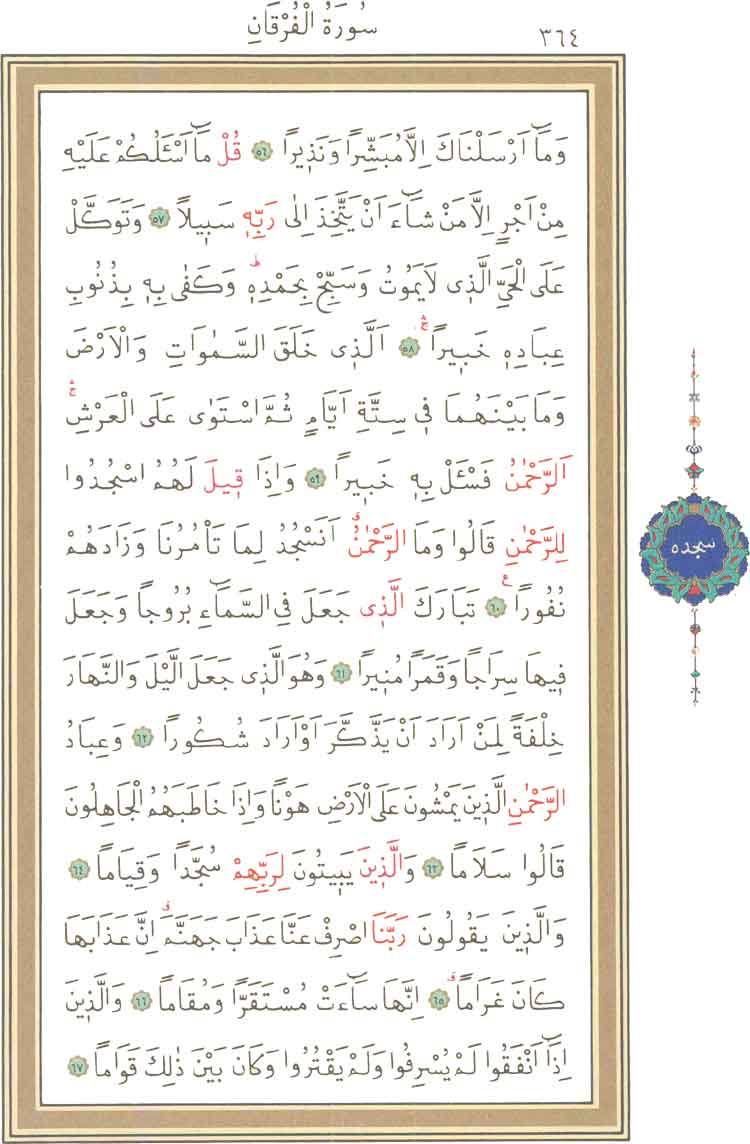 سُورَةُ الْفُرْقَانِ
٣٦٤
وَمَٓا اَرْسَلْنَاكَ اِلَّا مُبَشِّرًا وَنَذ۪يرًا ﴿٥٦﴾ قُلْ مَٓا اَسْـَٔلُكُمْ عَلَيْهِ
مِنْ اَجْرٍ اِلَّا مَنْ شَٓاءَ اَنْ يَتَّخِذَ اِلٰى رَبِّه۪ سَب۪يلًا ﴿٥٧﴾ وَتَوَكَّلْ
عَلَى الْحَيِّ الَّذ۪ي لَا يَمُوتُ وَسَبِّحْ بِحَمْدِه۪ۜ وَكَفٰى بِه۪ بِذُنُوبِ
عِبَادِه۪ خَب۪يرًاۚ ﴿٥٨﴾ اَلَّذ۪ي خَلَقَ السَّمٰوَاتِ وَالْاَرْضَ
وَمَا بَيْنَهُمَا ف۪ي سِتَّةِ اَيَّامٍ ثُمَّ اسْتَوٰى عَلَى الْعَرْشِۚ
اَلرَّحْمٰنُ فَسْـَٔلْ بِه۪ خَب۪يرًا ﴿٥٩﴾ وَاِذَا ق۪يلَ لَهُمُ اسْجُدُوا
لِلرَّحْمٰنِ قَالُوا وَمَا الرَّحْمٰنُۗ اَنَسْجُدُ لِمَا تَأْمُرُنَا وَزَادَهُمْ
نُفُورًا ﴿٦٠﴾ تَبَارَكَ الَّذ۪ي جَعَلَ فِي السَّمَٓاءِ بُرُوجًا وَجَعَلَ
ف۪يهَا سِرَاجًا وَقَمَرًا مُن۪يرًا ﴿٦١﴾ وَهُوَ الَّذ۪ي جَعَلَ الَّيْلَ وَالنَّهَارَ
خِلْفَةً لِمَنْ اَرَادَ اَنْ يَذَّكَّرَ اَوْ اَرَادَ شُكُورًا ﴿٦٢﴾ وَعِبَادُ
الرَّحْمٰنِ الَّذ۪ينَ يَمْشُونَ عَلَى الْاَرْضِ هَوْنًا وَاِذَا خَاطَبَهُمُ الْجَاهِلُونَ
قَالُوا سَلَامًا ﴿٦٣﴾ وَالَّذ۪ينَ يَب۪يتُونَ لِرَبِّهِمْ سُجَّدًا وَقِيَامًا ﴿٦٤﴾
وَالَّذ۪ينَ يَقُولُونَ رَبَّنَا اصْرِفْ عَنَّا عَذَابَ جَهَنَّمَۗ اِنَّ عَذَابَهَا
كَانَ غَرَامًاۗ ﴿٦٥﴾ اِنَّهَا سَٓاءَتْ مُسْتَقَرًّا وَمُقَامًا ﴿٦٦﴾ وَالَّذ۪ينَ
اِذَٓا اَنْفَقُوا لَمْ يُسْرِفُوا وَلَمْ يَقْتُرُوا وَكَانَ بَيْنَ ذٰلِكَ قَوَامًا ﴿٦٧﴾
سجده